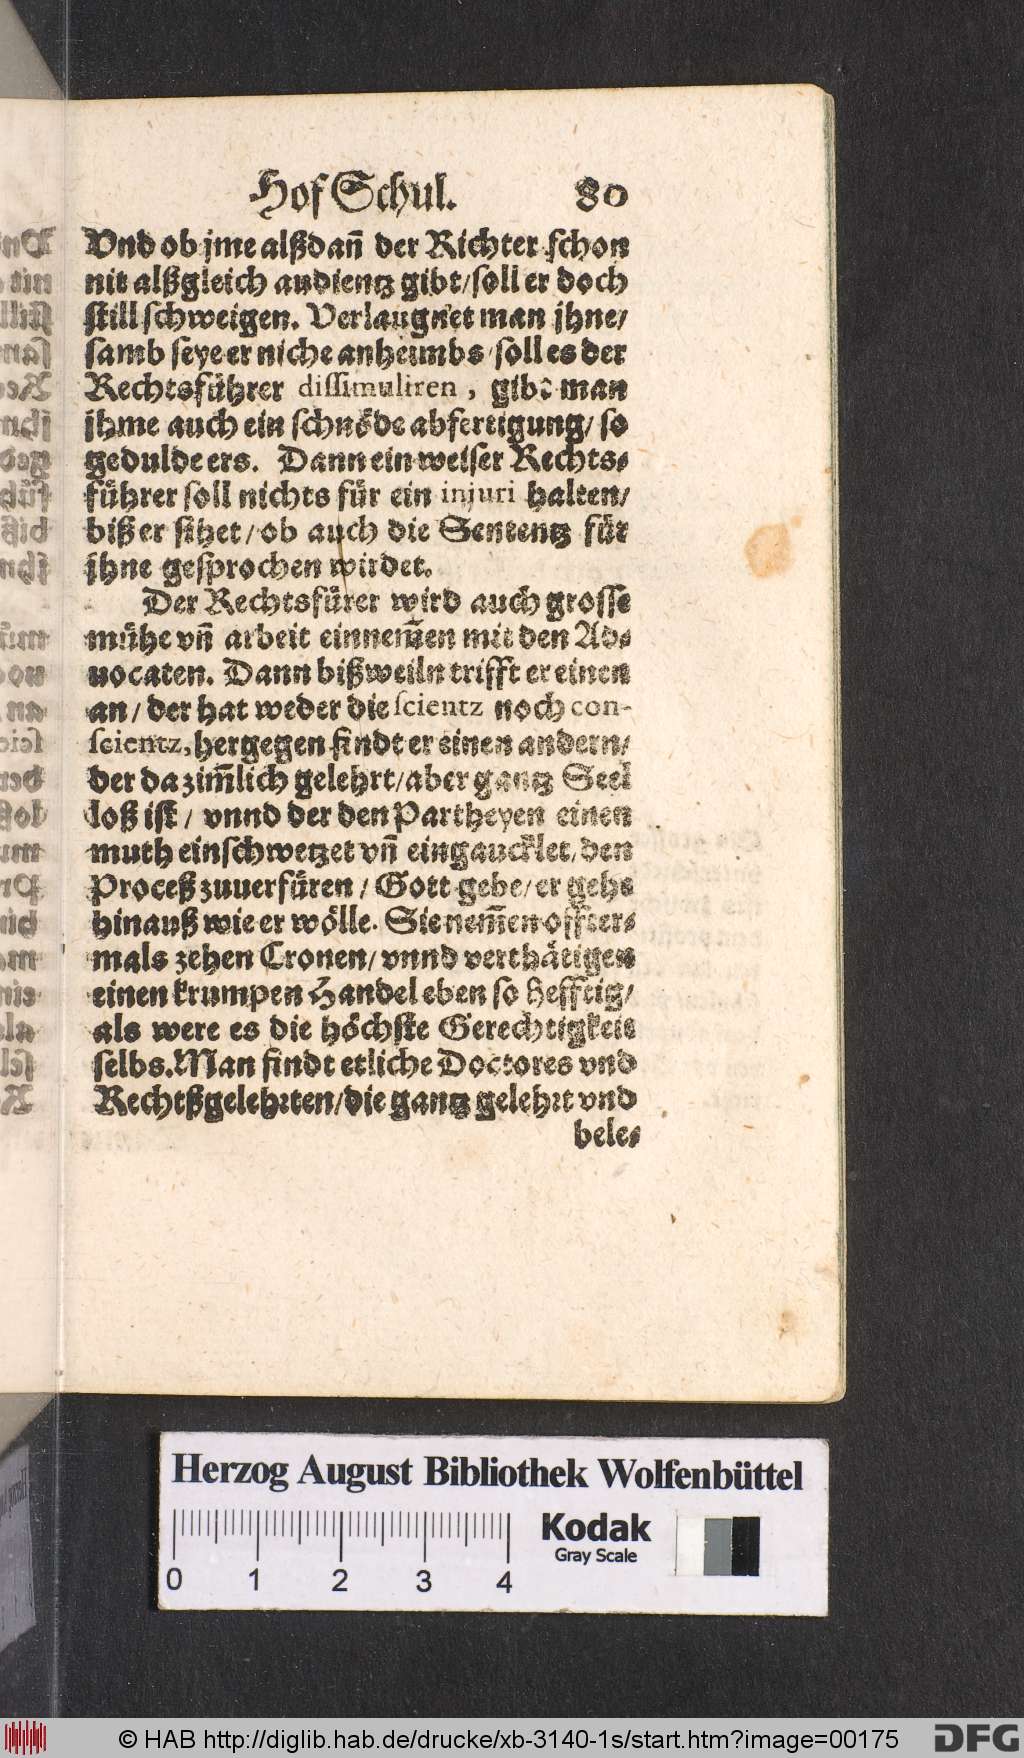 Hof Schul. 80
Vnd ob jme alßdañ der Richter schon
nit alßgleich audientz gibt/ soll er doch
still schweigen. Verlaugnet man jhne/
samb seye er nicht anheimbs/ soll es der
Rechtsführer dissimuliren, gibt man
jhme auch ein schnöde abfertigung/ so
gedulde ers. Dann ein weiser Rechts-
führer soll nichts für ein injuri halten/
biß er sihet/ ob auch die Sententz für
jhne gesprochen wirdet.
Der Rechtsfürer wird auch grosse
mühe vñ arbeit einnem̃en mit den Ad-
uocaten. Dann bißweiln trifft er einen
an/ der hat weder die scientz noch con-
scientz, hergegen findt er einen andern/
der da zim̃lich gelehrt/ aber gantz Seel
loß ist/ vnnd der den Partheyen einen
muth einschwetzet vñ eingaucklet/ den
Proceß zuuerfüren/ Gott gebe/ er gehe
hinauß wie er wölle. Sie nem̃en offter-
mals zehen Cronen/ vnnd verthätigen
einen krumpen Handel eben so hefftig/
als were es die höchste Gerechtigkeit
selbs. Man findt etliche Doctores vnd
Rechtßgelehrten/ die gantz gelehrt vnd
bele-
Herzog August Bibliothek Wolfenbüttel
0 1 2 3 4
Kodak
Gray Scale
© HAB http://diglib.hab.de/drucke/xb-3140-1s/start.htm?image=00175
DFG